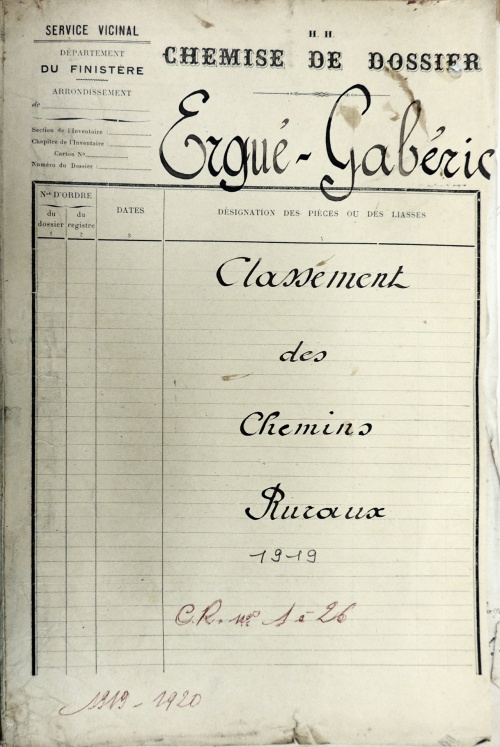 SERVICE VICINAL
DÉPARTEMENT
DU FINISTÈRE
ARRONDISSEMENT
de
Section de l'Inventaire :
Chapitre de l'Inventaire :
Carton No
Numéro du Dossier :
H. H.
CHEMISE DE DOSSIER
Ergué-Gabéric
Nos D'ORDRE
du dossier
du registre
DATES
DÉSIGNATION DES PIÈCES OU DES LIASSES
1 2 3
Classement
des
Chemins
Ruraux
1919
C.R. nos 1 à 26
1919 - 1920